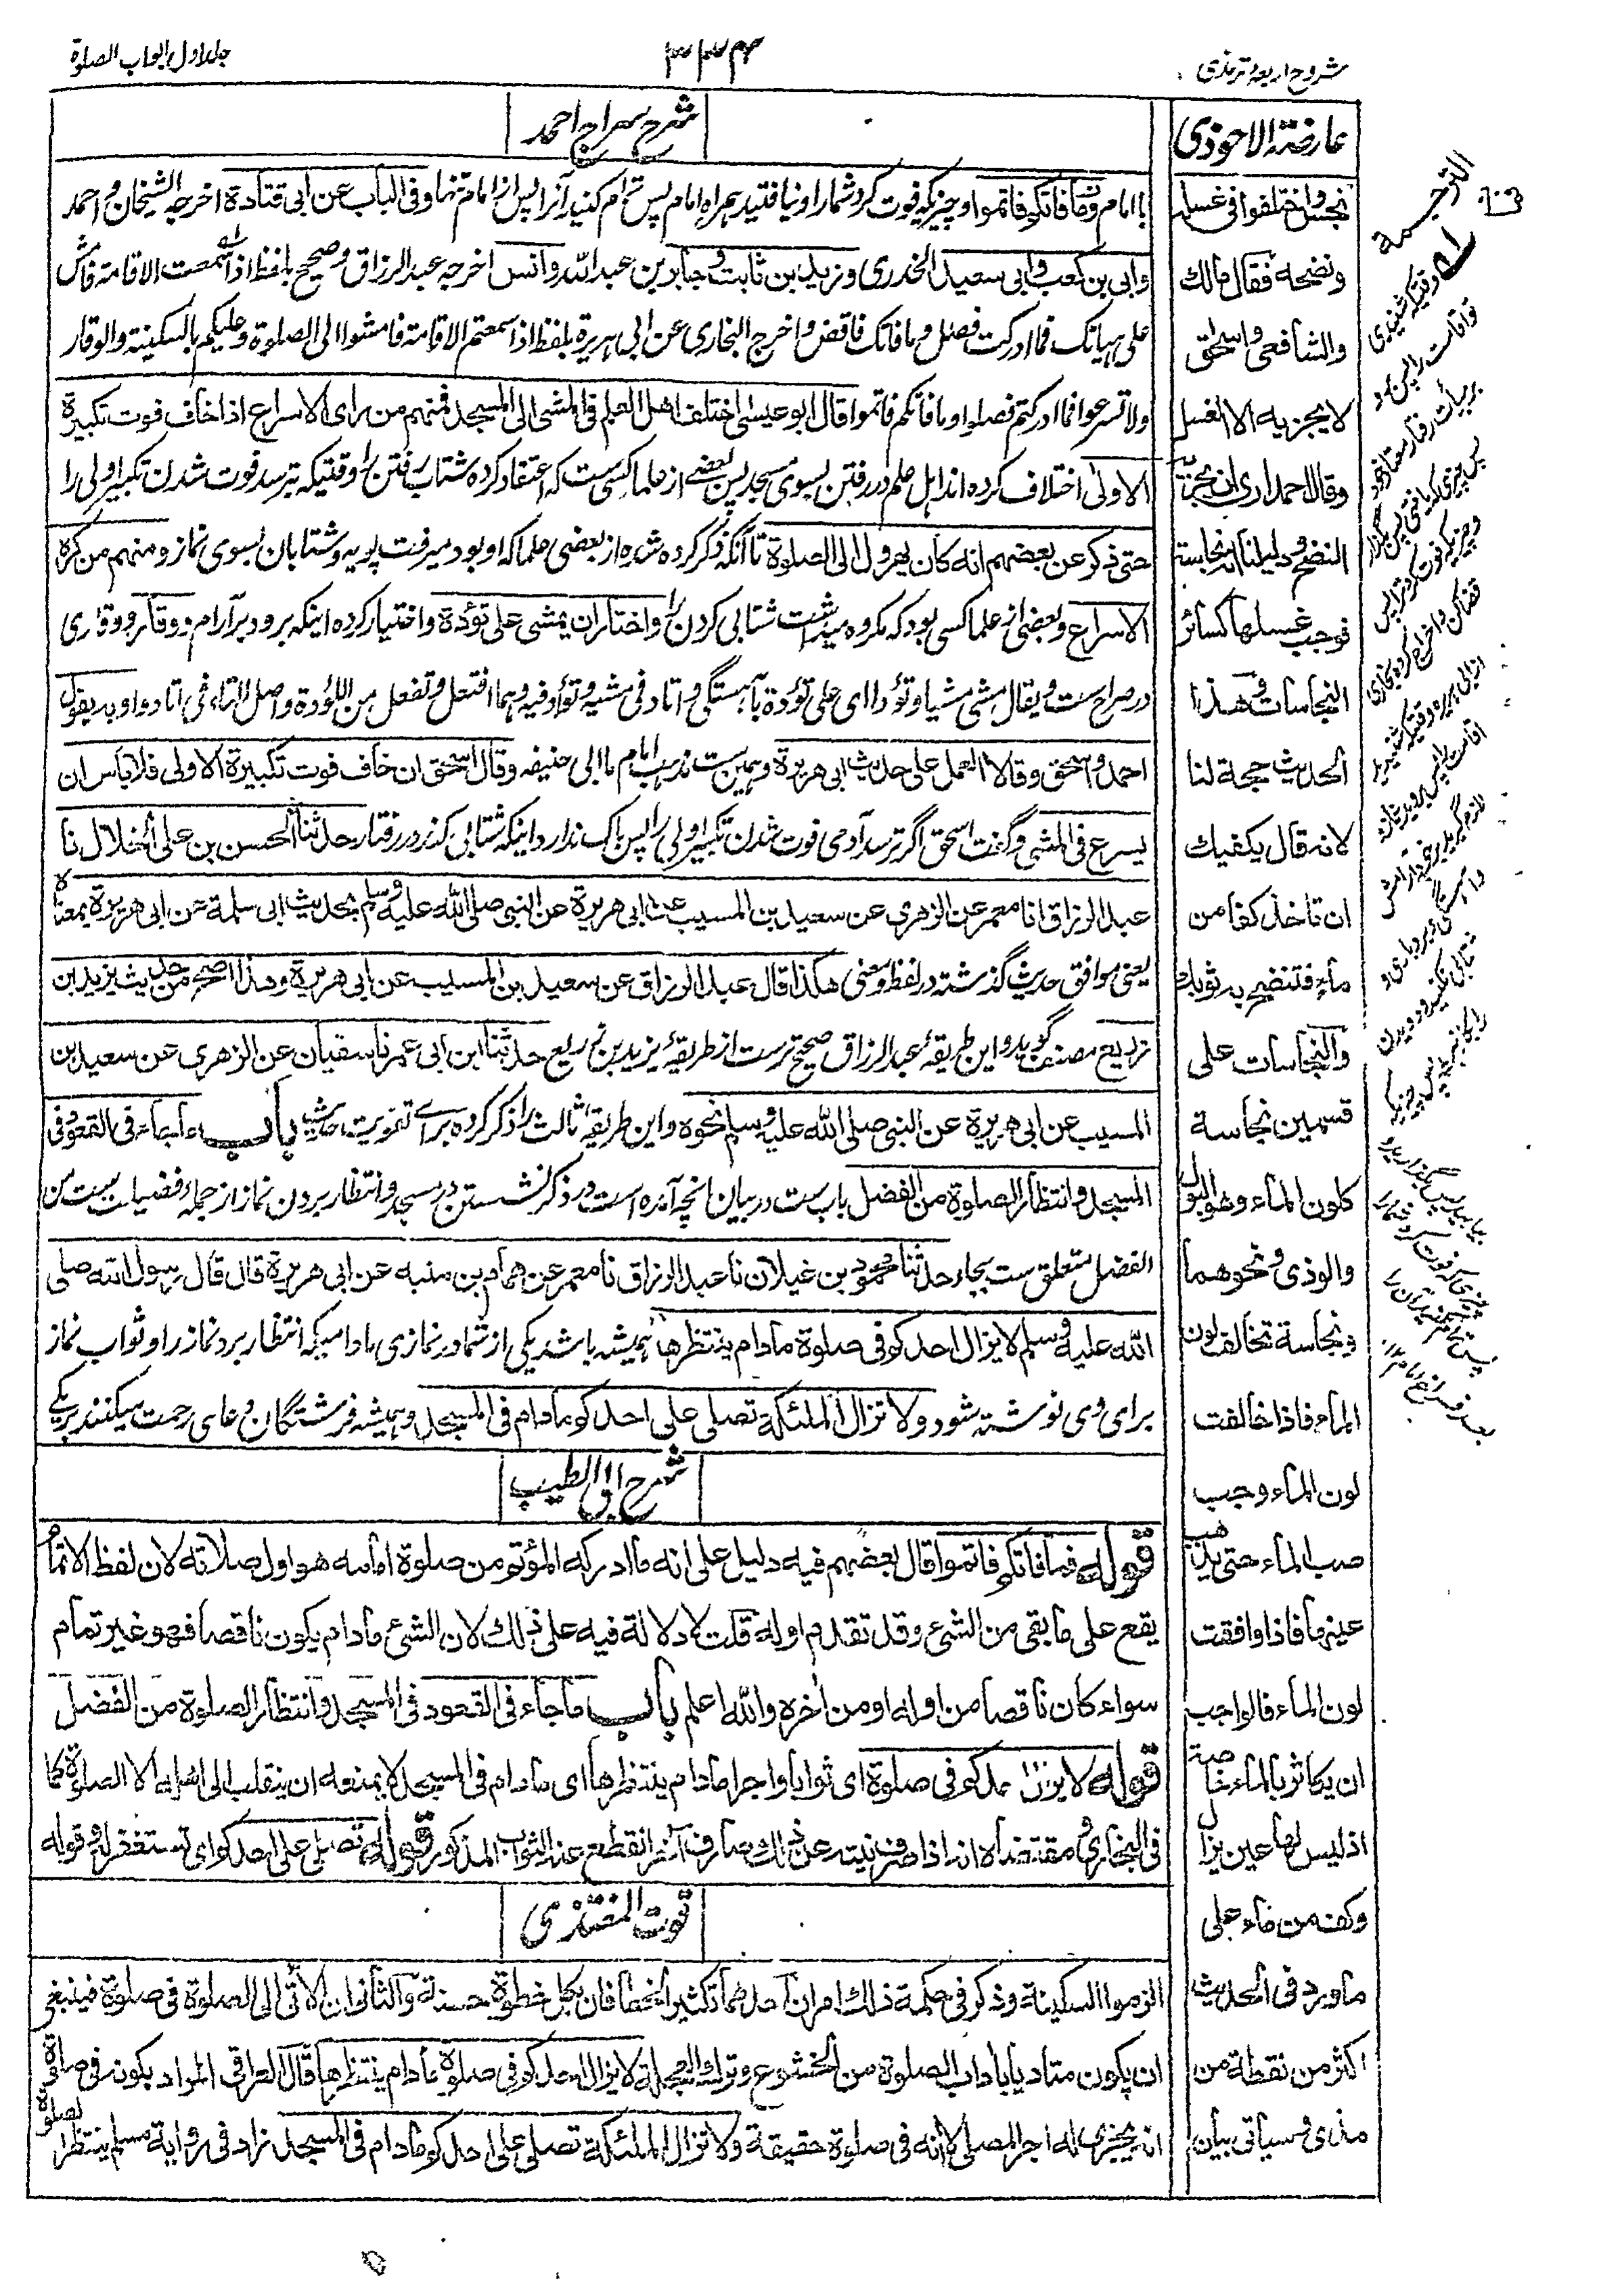 شروح اربعه ترمذی
۳۳۴
جلد اول ابواب الصلوة
عارضة الاحوذی
نجس واختلفوا فی غسله
ونضحه فقال مالك
والشافعی واسحق
لا یجزیه الا الغسل
وقال احمد اری ان یجزیه
النضح ودلیلنا انه نجاسة
فوجب غسلها کسائر
النجاسات وهذا
الحدیث حجة لنا
لانه قال یکفیك
ان تاخذ کفا من
ماء فتنضح به ثوبك
والنجاسات علی
قسمین نجاسة
کلون الماء وهو البول
والوذی ونحوهما
ونجاسة تخالف لون
الماء فاذا خالفت
لون الماء وجب
صب الماء حتی یذهب
عینها فاذا وافقت
لون الماء فالواجب
ان یکاثر بالماء خاصة
اذ لیس لها عین یزال
وکفه من ماء علی
ما ورد فی الحدیث
اکثر من نقطة من
مذی وسیاتی بیان
شرح سراج احمد
با امام وما فاتکم فاتموا و چیزیکه فوت کرد شما را و نیافتید همراه امام پس تمام کنید آنرا پس از امام تنها وفی الباب عن ابی قتادة اخرجه الشیخان واحمد
وابی بن کعب وابی سعید الخدری وزید بن ثابت وجابر بن عبد الله وانس اخرجه عبد الرزاق وصحیح بلفظ اذا سمعت الاقامة فامش
علی هیاتک فما ادرکت فصل وما فاتک فاقض واخرج البخاری عن ابی هریرة بلفظ اذا سمعتم الاقامة فامشوا الی الصلوة وعلیکم بالسکینة والوقار
ولا تسرعوا فما ادرکتم فصلوا وما فاتکم فاتموا قال ابو عیسی اختلف اهل العلم فی المشی الی المسجد فمنهم من رای الاسراع اذا خاف فوت تکبیرة
الاولی اختلاف کرده اند اهل علم در رفتن بسوی مسجد پس بعضے از علما کسی ست که اعتقاد کرده شتاب رفتن را وقتیکه بترسد فوت شدن تکبیر اولی را
حتی ذکر عن بعضهم انه کان یهرول الی الصلوة تا آنکه ذکر کرده شده از بعضی علما که او بود میرفت پویه و شتابان بسوی نماز ومنهم من کره
الاسراع وبعضی از علما کسی بود که مکروه میداشت شتابی کردن را واختار ان یمشی علی تؤدة و اختیار کرده اینکه برود بر آرام و وقار و وقاری
در صراح ست ویقال مشی مشیا وتؤدا ای علی تؤدة بآهستگی واتاد فی مشیه وتوأد فیه وهما افتعل وتفعل من التؤدة واصل التاء فی اتاد واو وبه یقول
احمد واسحق وقالا العمل علی حدیث ابی هریرة وهمین ست مذهب امام ما ابی حنیفه وقال اسحق ان خاف فوت تکبیرة الاولی فلا باس ان
یسرع فی المشی وگفت اسحق اگر ترسد آدمی فوت شدن تکبیر اولی را پس باک ندارد اینکه شتابی کند در رفتار حدثنا الحسن بن علی الخلال نا
عبد الرزاق انا معمر عن الزهری عن سعید بن المسیب عن ابی هریرة عن النبی صلی الله علیه وسلم بحدیث ابی سلمة عن ابی هریرة بمعناه
یعنی موافق حدیث گذشته در لفظ و معنی هکذا قال عبد الرزاق عن سعید بن المسیب عن ابی هریرة وهذا اصح من حدیث یزید بن
زریع مصنف گوید و این طریقه عبد الرزاق صحیح ترست از طریقه یزید بن زریع حدثنا ابن ابی عمر نا سفیان عن الزهری عن سعید بن
المسیب عن ابی هریرة عن النبی صلی الله علیه وسلم نحوه و این طریقه ثالث را ذکر کرده برای تقویت حدیث باب ما جاء فی القعود فی
المسجد وانتظار الصلوة من الفضل باب ست در بیان انچه آمده است در ذکر نشستن در مسجد و انتظار بردن نماز از جمله فضیلت ست من
الفضل متعلق ست بجاء حدثنا محمود بن غیلان نا عبد الرزاق نا معمر عن همام بن منبه عن ابی هریرة قال قال رسول الله صلی
الله علیه وسلم لا یزال احدکم فی صلوة ما دام ینتظرها همیشه باشد یکی از شما در نمازی مادامیکه انتظار برد نماز را و ثواب نماز
برای وی نوشته شود ولا تزال الملئکة تصلی علی احدکم ما دام فی المسجد و همیشه فرشتگان دعای رحمت میکنند بر یکے
شرح ابی الطیب
قوله فما فاتکم فاتموا قال بعضهم فیه دلیل علی انه ما ادرکه المؤتم من صلوة امامه هو اول صلاته لان لفظ الاتمام
یقع علی ما بقی من الشئ وقد تقدم اوله قلت لا دلالة فیه علی ذلك لان الشئ ما دام یکون ناقصا فهو غیر تمام
سواء کان ناقصا من اوله او من اخره والله اعلم باب ما جاء فی القعود فی المسجد وانتظار الصلوة من الفضل
قوله لا یزال احدکم فی صلوة ای ثوابا واجرا ما دام ینتظرها ای ما دام فی المسجد لا یمنعه ان ینقلب الی اهله الا الصلوة کما
فی البخاری ومقتضاه انه اذا صرف نیته عن ذلك صارف آخر انقطع عنه الثواب المذکور قوله تصلی علی احدکم ای تستغفر له وقوله
قوت المغتذی
الزموا السکینة وذکر فی حکمة ذلك امران احدهما تکثیر الخطا فان بکل خطوة حسنة والثانی ان الآتی الی الصلوة فی صلوة فینبغی
ان یکون متادبا بآداب الصلوة من الخشوع وترك العجلة لا یزال احدکم فی صلوة ما دام ینتظرها قال العراقی المراد بکونه فی صلوة
انه یجزی له اجر المصلی لا انه فی صلوة حقیقة ولا تزال الملئکة تصلی علی احدکم ما دام فی المسجد زاد فی روایة مسلم ینتظر الصلوة
الترجمة
وقتیکه شنیدی
تو اقامت را پس برو
بر هیأت رفتار معتاد خود
پس چیزیکه یافتی پس بگذار
و چیزیکه فوت کرد ترا پس
قضا کن و اخراج کرده بخاری
از ابی هریره وقتیکه شنیدید
اقامت را پس بروید بنماز و